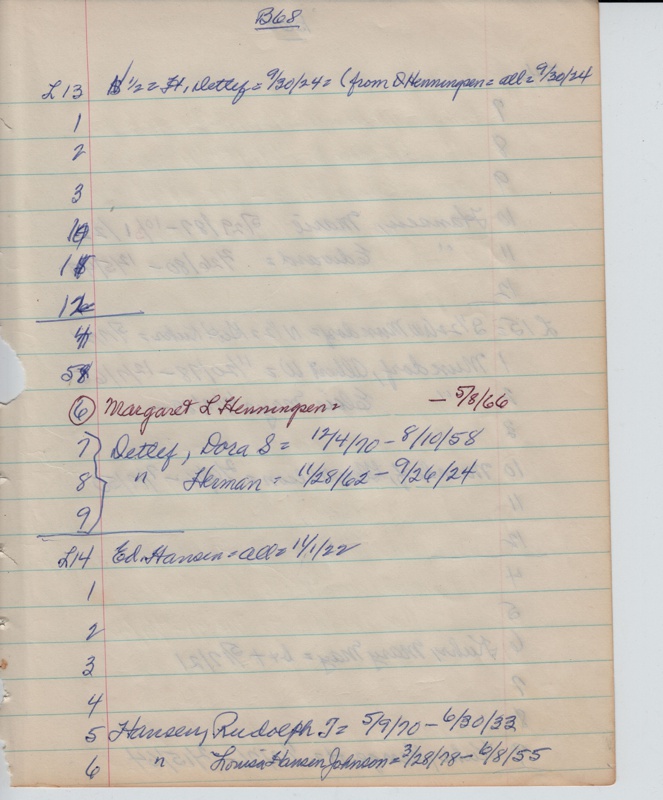 B68
L13 S 1/2 = H, Detlef = 9/30/24 = (from D Henningsen = all = 9/30/24
1
2
3
10
11
12
4
5
6 Margaret L Henningsen = - 5/8/66
7 Detlef, Dora S = 12/4/70 - 8/10/58
8 " Herman = 11/28/62 - 9/26/24
9
L14 Ed. Hansen = all = 11/1/22
1
2
3
4
5 Hansen, Rudolph T = 5/9/70 - 6/30/33
6 " Louisa Hansen Johnson = 3/28/78 - 6/8/55